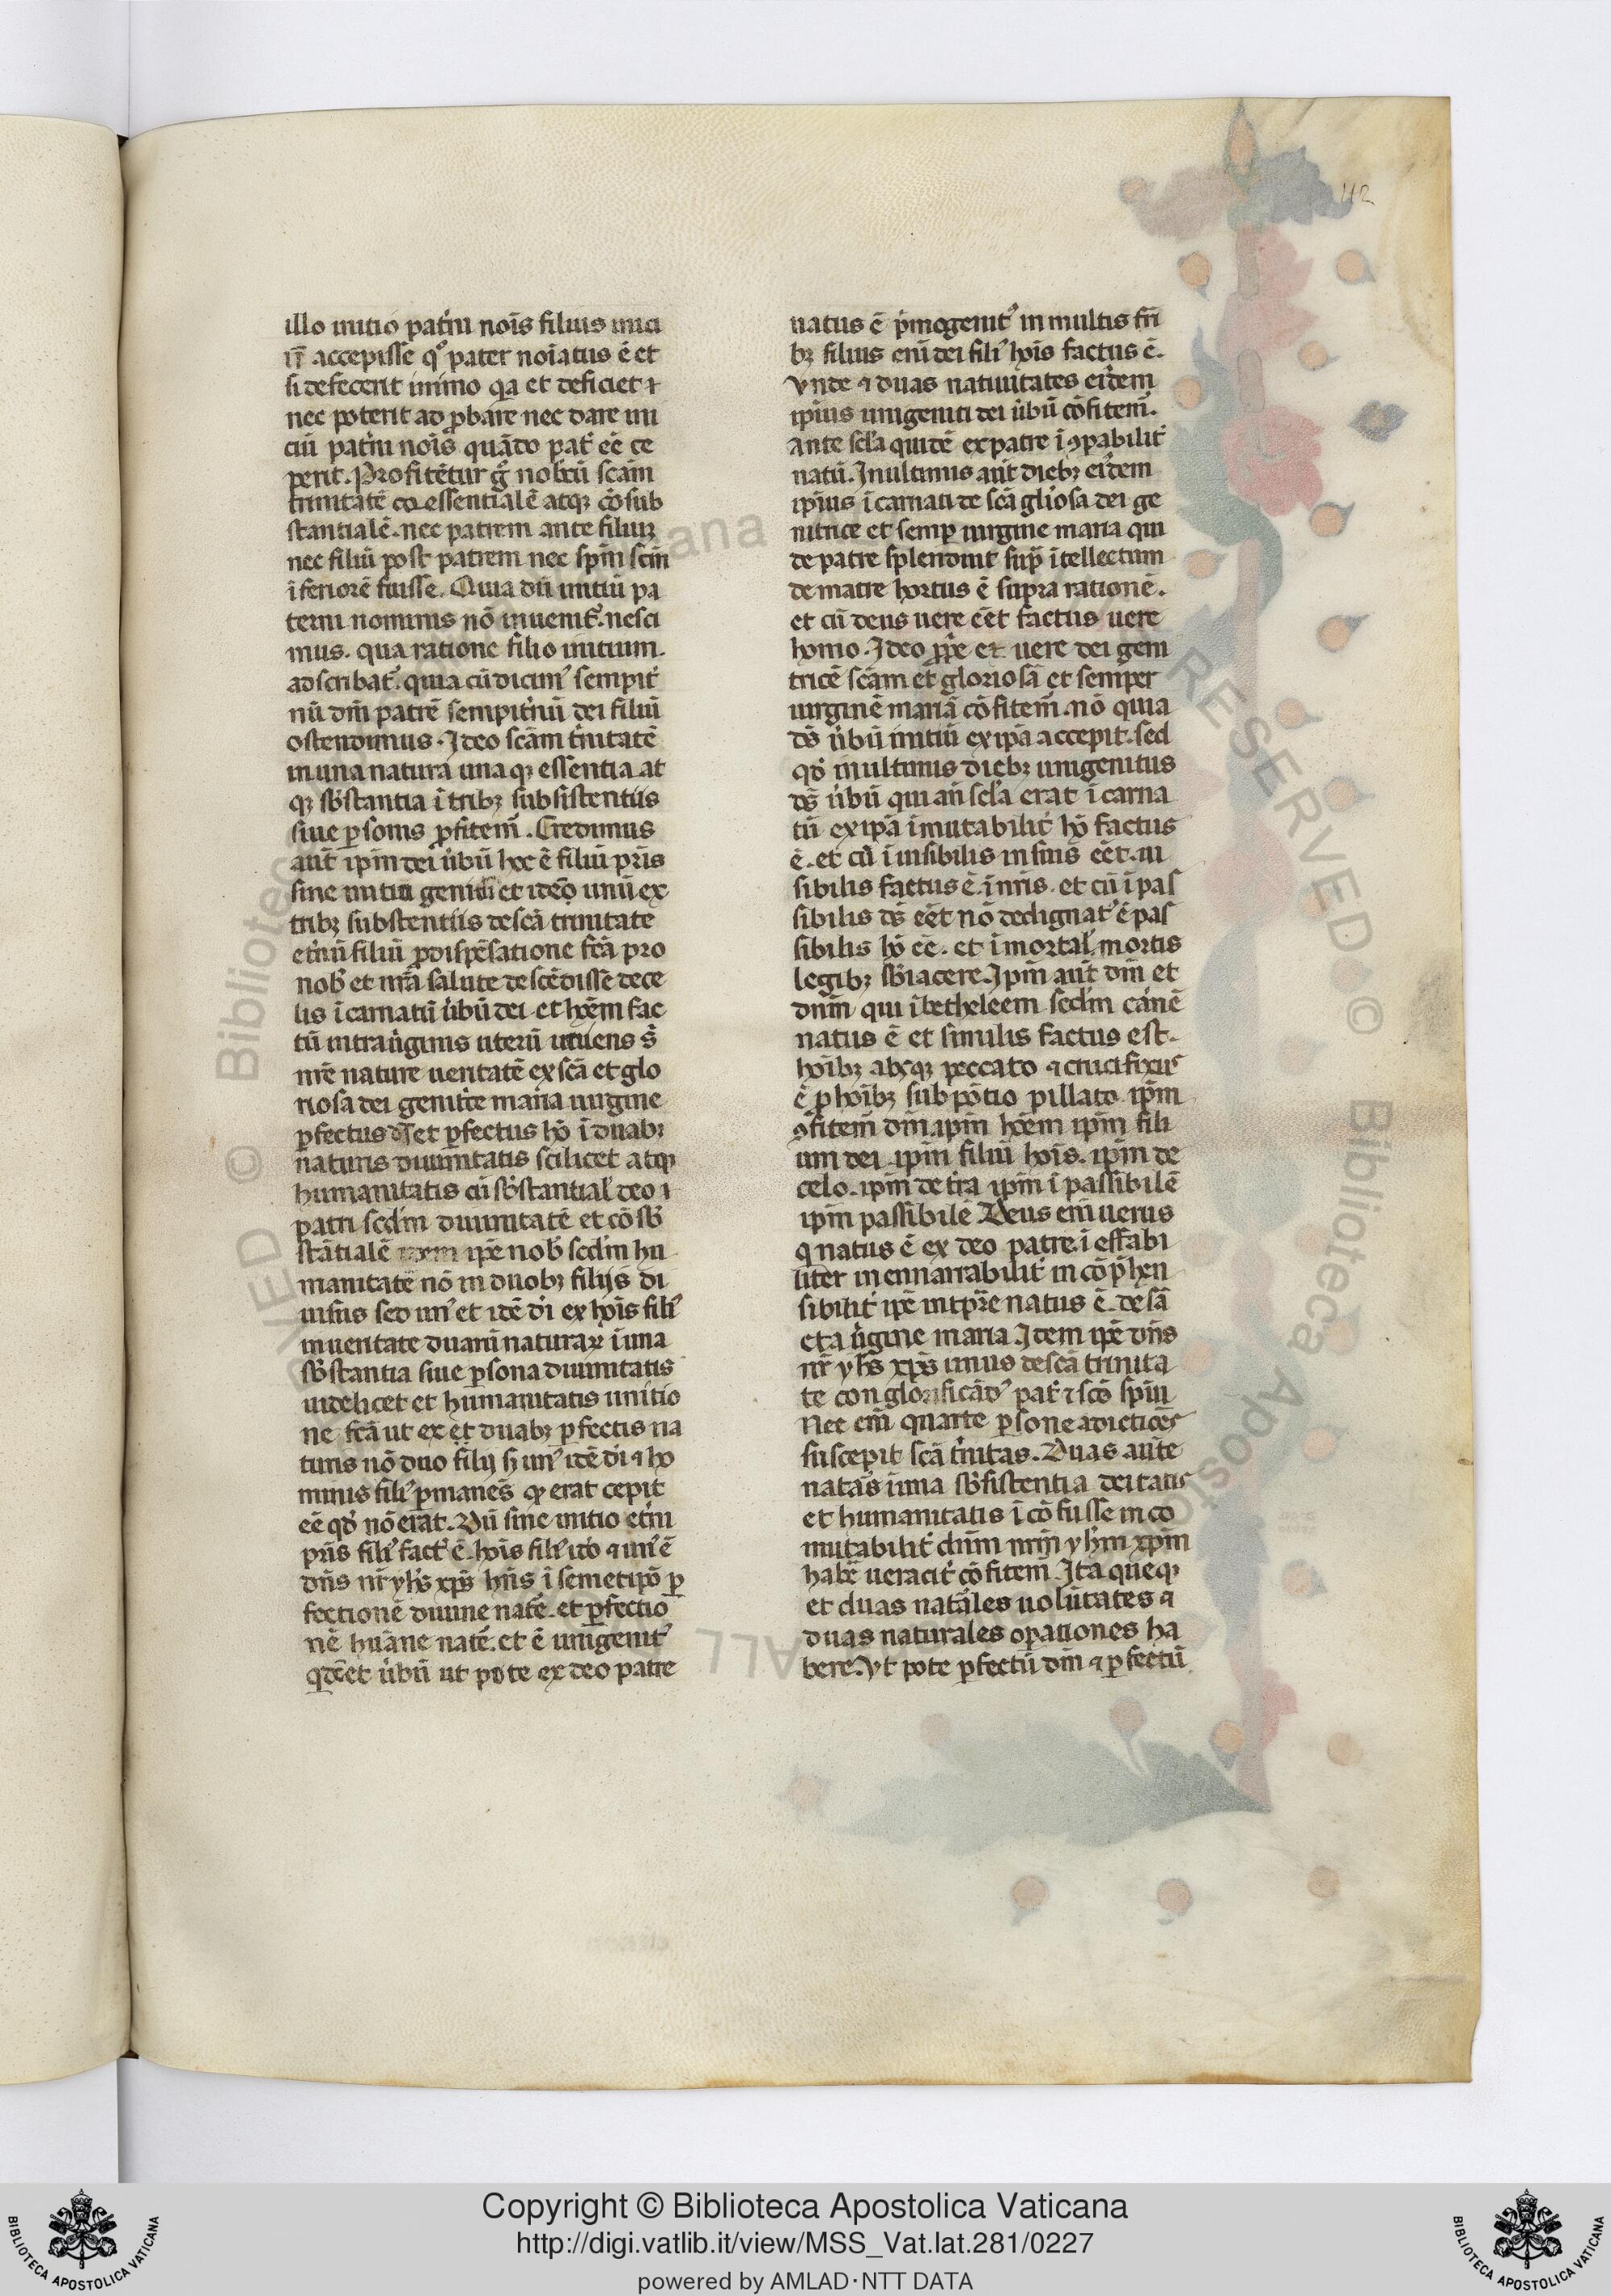 42
illo initio pat̉ni nois̄ filius inici
ū accepisse qͦ pater noīatus ē et
si defecerit immo qa et deficiet ⁊
nec poterit ad ꝓbare nec dare ini
ciū pat̉ni nois̄ quādo pat̉ eē ce
perit. Profitētur gͦ nobcū scām
trinitatē co essentialē atqꝫ cōsub
stantialē. nec patrem ante filiuꝫ
nec filiū post patrem nec spm̄ scm̄
īferiorē fuisse. Quia dū initiū pa
terni nominis nō inuenit᷒. nesci
mus. qua ratione filio initium.
adscribat᷒. quia cū dicim᷒ sempit̉
nū dm̄ patrē sempit̉nū dei filiū
ostendimus. Ideo scām t̉nitatē
in una natura una qꝫ essentia at
qꝫ sb̄stantia ī tribꝫ subsistentiis
siue ꝑsonis ꝓfitem᷒. Credimus
aūt ipm̄ dei ūbū hoc ē filiū pr̄is
sine initiū genitū et ideo unū ex
tribꝫ subsistentiis de scā trinitate
et̉nū filiū ꝓ dispēsatione fcā pro
nob̄ et nr̄a salute descēdisse de ce
lis īcarnatū ūbū dei et hoēm fac
tū intra ūginis uterū
nr̄e nature ueritatē ex scā et glo
riosa dei genit̉ce maria uirgine
ꝑfectus ds̄ et ꝑfectus hō ī duabꝫ
naturis diuinitatis scilicet atqꝫ
humanitatis cū sb̄stantial̉ deo ⁊
patri scd̄m diuinitatē et cōsb̄
stātialē ipē nob̄ scd̄m hu
manitatē nō in duobꝫ filijs di
uisus sed un᷒ et idē di ex hois̄ fili᷒
in ueritate duarū naturaꝝ ī una
sb̄stantia siue ꝑsona diuinitatis
uidelicet et humanitatis unitio
ne fcā ut ex et duabꝫ ꝑfectis na
turis nō duo filij s un᷒ idē di ⁊ ho
minis fili᷒ ꝑmanēs qͦ erat cepit
eē qd̄ nō erat. Dū sine initio et̉ni
pr̄is fili᷒ fact᷒ ē hois̄ fili᷒ ido ⁊ un᷒ ē
dn̄s nr̄ yhs̄ xp̄s hn̄s ī semetipō ꝑ
fectionē diuine nat̄e. et ꝑfectio
nē huāne nat̄e. et ē unigenit᷒
ūbū ut pote ex deo patre
natus ē p̉mogenit᷒ in multis fr̄i
bꝫ filius enī dei fili᷒ hois̄ factus ē.
vnde ⁊ duas natiuitates eīdem
ipīus unigeniti dei ūbū cōfitem᷒.
ante scl̄a quidē ex patre īꝯpabilit̉
natū. In ultimis aūt diebꝫ eīdem
ipīus īcarnati de scā gliosa dei ge
nitrice et semꝑ uirgine maria qui
de patre splenduit sup̄ ītellectum
de matre hortus ē supra rationē.
et cū deus uere eēt factus uere
homo. Ideo ꝓpe et uere dei geni
tricē scām et gloriosā et semper
uirginē mariā cōfitem᷒. nō quia
ds̄ ūbū initiū ex ipā accepit. sed
qd̄ in ultimis diebꝫ unigenitus
ds̄ ūbū qui an̄ scl̄a erat īcarna
tū ex ipā īmutabilit̉ hō factus
ē. et cū īuisibilis in suis eēt. ui
sibilis factus ē. ī nr̄is. et cū īpas
sibilis ds̄ eēt nō dedignat᷒ ē pas
sibilis hō eē. et īmortal̉ mortis
legibꝫ sb̄iacere. Ipm̄ aūt dm̄ et
dnm̄ qui ī betheleem scd̄m carnē
natus ē et similis factus est.
hoībꝫ absqꝫ peccato ⁊ crucifixus
ē ꝑ hoībꝫ sub pōtio pillato. ipm̄
ꝯfitem᷒ dm̄. ipm̄ hoēm ipm̄ fili
um dei. ipm̄ filiū hois̄. ipm̄ de
celo. ipm̄ de t̉ra ipm̄ īpassibilē
ipm̄ passibilē Deus enī uerus
q natus ē ex deo patre. īeffabi
liter inennarrabilit̉ in cōp̉hen
sibilit̉ ipē int pr̄e natus ē. de sā
et a ūgine maria. Item ipē dn̄s
nr̄ yhs̄ xp̄s unus de scā trinita
te conglorificād᷒ pat̉ ⁊ scō spiu
Nec enī quarte ꝑsone
suscepit scā t̉nitas. Duas aūte
natās ī una sb̄sistentia deitatis
et humanitatis ī cōfusse in co
mutabilit̉ dnm̄ nrm̄ yhm̄ xpm̄
habē ueracit̉ cōfitem᷒. Ita queqꝫ
et duas natāles uolūtates ⁊
duas naturales oꝑationes ha
bere. Vt pote ꝑfectū dm̄ ⁊ ꝑfectū
Copyright © Biblioteca Apostolica Vaticana
http://digi.vatlib.it/view/MSS_Vat.lat.281/0227
powered by AMLAD·NTT DATA
BIBLIOTECA APOSTOLICA VATICANA
BIBLIOTECA APOSTOLICA VATICANA